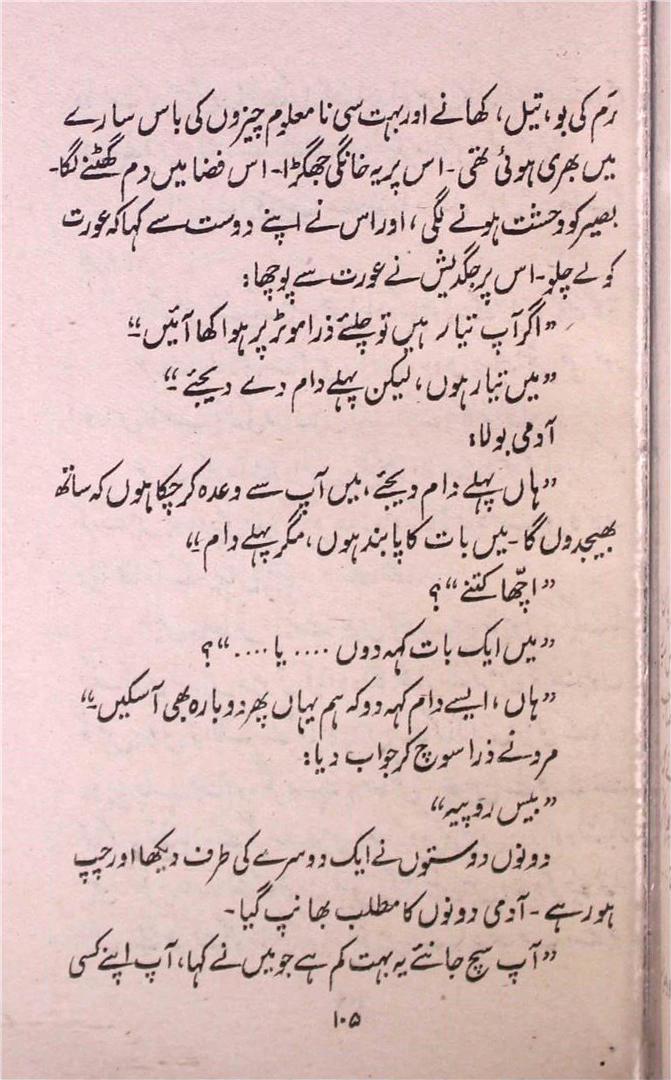 رَم کی بو، تیل، کھانے اور بہت سی نا معلوم چیزوں کی باس سارے
میں بھری ہوئی تھی۔ اس پر یہ خانگی جھگڑا۔ اس فضا میں دم گھٹنے لگا۔
بصیر کو وحشت ہونے لگی، اور اس نے اپنے دوست سے کہا کہ عورت
کو لے چلو۔ اس پر جگدیش نے عورت سے پوچھا:
”اگر آپ تیار ہیں تو چلئے ذرا موٹر پر ہوا کھا آئیں۔“
”میں تیار ہوں، لیکن پہلے دام دے دیجئے۔“
آدمی بولا:
”ہاں پہلے دام دیجئے، میں آپ سے وعدہ کر چکا ہوں کہ ساتھ
بھیجدوں گا۔ میں بات کا پابند ہوں، مگر پہلے دام۔“
”اچّھا کتنے“؟
”میں ایک بات کہہ دوں .... یا ....“؟
”ہاں، ایسے دام کہہ دو کہ ہم یہاں پھر دوبارہ بھی آ سکیں۔“
مرد نے ذرا سوچ کر جواب دیا:
”بیس روپیہ“
دونوں دوستوں نے ایک دوسرے کی طرف دیکھا اور چپ
ہو رہے۔ آدمی دونوں کا مطلب بھانپ گیا۔
”آپ سچ جانئے یہ بہت کم ہے جو میں نے کہا، آپ اپنے کسی
۱۰۵